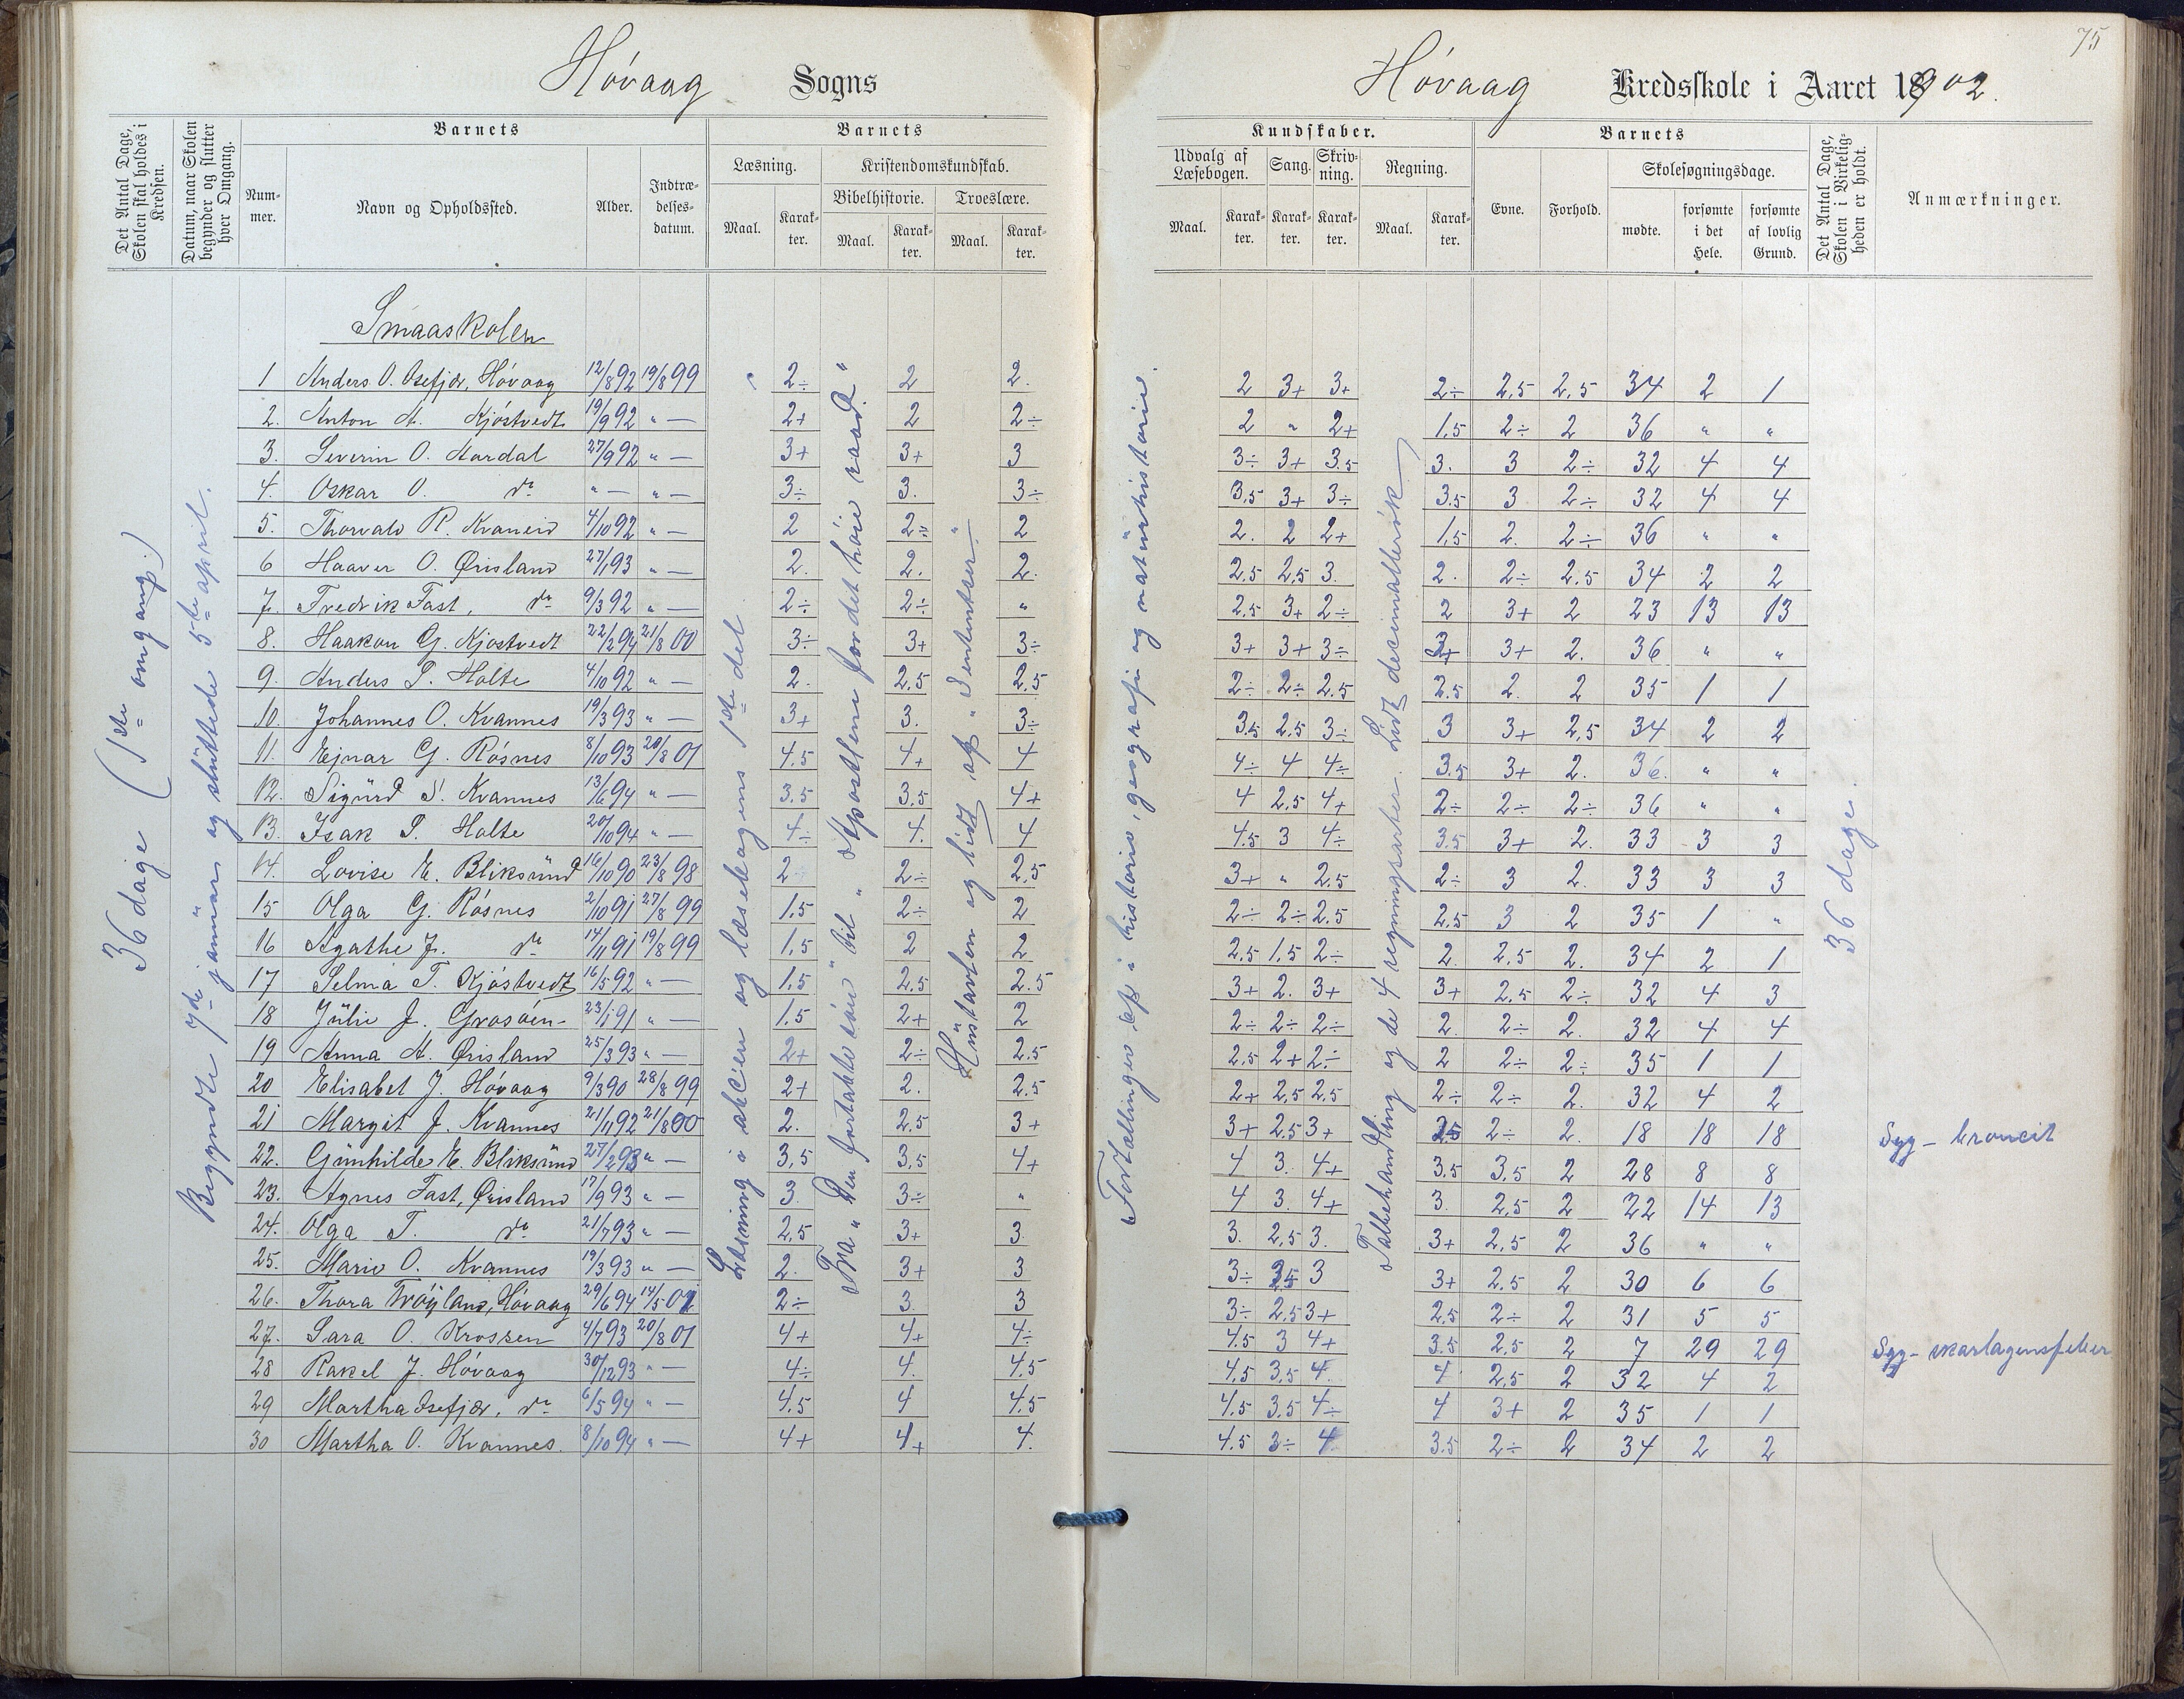 75
Hövaag Sogns
Hövaag Kredsskole i Aaret 1902.
Det Antal Dage, Skolen skal holdes i Kredsen.
Datum, naar Skolen begynder og slutter hver Omgang.
Barnets
Nummer.
Navn og Opholdssted.
Alder.
Indtrædelsesdatum.
Barnets
Læsning.
Maal.
Karakter.
Kristendomskundskab.
Bibelhistorie.
Maal.
Karakter.
Troeslære.
Maal.
Karakter.
Kundskaber.
Udvalg af Læsebogen.
Maal.
Karakter.
Sang.
Karakter.
Skrivning.
Karakter.
Regning.
Maal.
Karakter.
Barnets
Evne.
Forhold.
Skolesøgningsdage.
mødte.
forsømte i det Hele.
forsømte af lovlig Grund.
Det Antal Dage, Skolen i Virkeligheden er holdt.
Anmærkninger.
36 dage (1ste omgang.)
Begyndte 7de januar og sluttede 5te april.
Læsning i abc'en og læsebogens 1ste del
Fra "Den fortabte sön" til "Apostlene for det höie raad"
Hustavlen og lidt af "Sententser"
Fortællinger af i historie, geografi og naturhistorie.
Talbehandling og de 4 regningsarter. Lidt decimalbrök
36 dage.
Smaaskolen
1 Anders O. Osefjær, Hövaag 12/8 92 19/8 99 2÷ 2 2. 2 3+ 3+ 2÷ 2,5 2,5 34 2 1
2. Anton A. Kjöstvedt 19/9 92 " — 2+ 2 2÷ 2 " 2+ 1,5 2÷ 2 36 " "
3. Severin O. Aardal 27/9 92 " — 3+ 3+ 3 3÷ 3+ 3.5 3. 3 2÷ 32 4 4
4. Oskar O. do " — " — 3÷ 3. 3÷ 3,5 3+ 3÷ 3.5 3 2÷ 32 4 4
5. Thorvald R. Kvaneid 4/10 92 " — 2 2÷ 2 2. 2 2+ 1,5 2. 2÷ 36 " "
6 Haaver O. Ørisland 27/1 93 " — 2. 2. 2. 2,5 2,5 3. 2. 2÷ 2.5 34 2 2
7. Fredrik Fast, do 9/3 92 " — 2÷ 2÷ " 2.5 3+ 2÷ 2 3+ 2 23 13 13
8. Haakon G. Kjöstvedt 22/2 94 21/8 00 3÷ 3+ 3÷ 3+ 3+ 3÷ 3+ 3+ 2. 36 " "
9. Anders P. Holte 4/10 92 " — 2. 2,5 2,5 2÷ 2÷ 2.5 2.5 2. 2 35 1 1
10. Johannes O. Kvannes 19/3 93 " — 3+ 3. 3÷ 3,5 2.5 3÷ 3 3+ 2,5 34 2 2
11. Ejnar G. Rösnes 8/10 93 20/8 01 4.5 4+ 4 4÷ 4 4÷ 3.5 3+ 2. 36. " "
12. Sigurd S. Kvannes 13/6 94 " — 3.5 3.5 4+ 4 2.5 4+ 2÷ 2÷ 2÷ 36 " "
13. Isak P. Holte 20/10 94 " — 4÷ 4. 4 4.5 3 4÷ 3.5 3+ 2. 33 3 3
14. Lovise E. Bliksund 16/10 90 23/8 98 2 2÷ 2,5 3+ " 2,5 2÷ 3 2. 33 3 3
15 Olga G. Rösnes 2/10 91 27/8 99 1,5 2÷ 2 2÷ 2÷ 2.5 2,5 3 2 35 1 "
16 Agathe J. do 14/11 91 19/8 99 1,5 2 2 2.5 1.5 2÷ 2. 2,5 2. 34 2 1
17 Selma T. Kjöstvedt 16/5 92 " — 1.5 2.5 2.5 3+ 2. 3+ 3+ 2,5 2÷ 32 4 3
18 Julie J. Grosöen 23/1 91 " — 1.5 2+ 2 2÷ 2÷ 2÷ 2. 2÷ 2. 32 4 4
19 Anna A. Ørisland 25/3 93 " — 2+ 2÷ 2.5 2.5 2+ 2÷ 2 2÷ 2÷ 35 1 1
20 Elisabet J. Hövaag 9/3 90 28/8 99 2+ 2. 2.5 2+ 2,5 2.5 2÷ 2÷ 2. 32 4 2
21 Margit J. Kvannes 21/11 92 21/8 00 2. 2.5 3+ 3+ 2.5 3+ 2,5 2÷ 2. 18 18 18 Syg - broncit
22. Gunhilde E. Bliksund 27/2 93 " — 3,5 3,5 4+ 4 3. 4+ 3.5 3,5 2 28 8 8
23. Agnes Fast, Ørisland 17/9 93 " — 3. 3÷ " 4 3. 4+ 3. 2,5 2 22 14 13
24. Olga T. do 21/7 93 " — 2,5 3+ 3. 3. 2,5 3. 3+ 2,5 2 36 " "
25. Marie O. Kvannes 19/3 93 " — 2. 3+ 3 3÷ 2,5 3 3+ 2.5 2 30 6 6
26. Thora Tröjland, Hövaag 29/6 94 14/5 01 2÷ 3. 3 3÷ 2,5 3+ 2,5 2÷ 2 31 5 5
27. Sara O. Krossen 4/7 93 20/8 01 4+ 4+ 4÷ 4.5 3 4+ 3.5 2,5 2 7 29 29 Syg - skarlagensfeber
28 Rakel J. Hövaag 30/12 93 " — 4÷ 4. 4.5 4.5 3.5 4. 4 2,5 2 32 4 2
29 Martha Osefjær, do 6/5 94 " — 4.5 4 4.5 4.5 3.5 4÷ 4 3+ 2 35 1 1
30 Martha O. Kvannes. 8/10 94 " — 4+ 4+ 4. 4.5 3÷ 4 3.5 2÷ 2 34 2 2